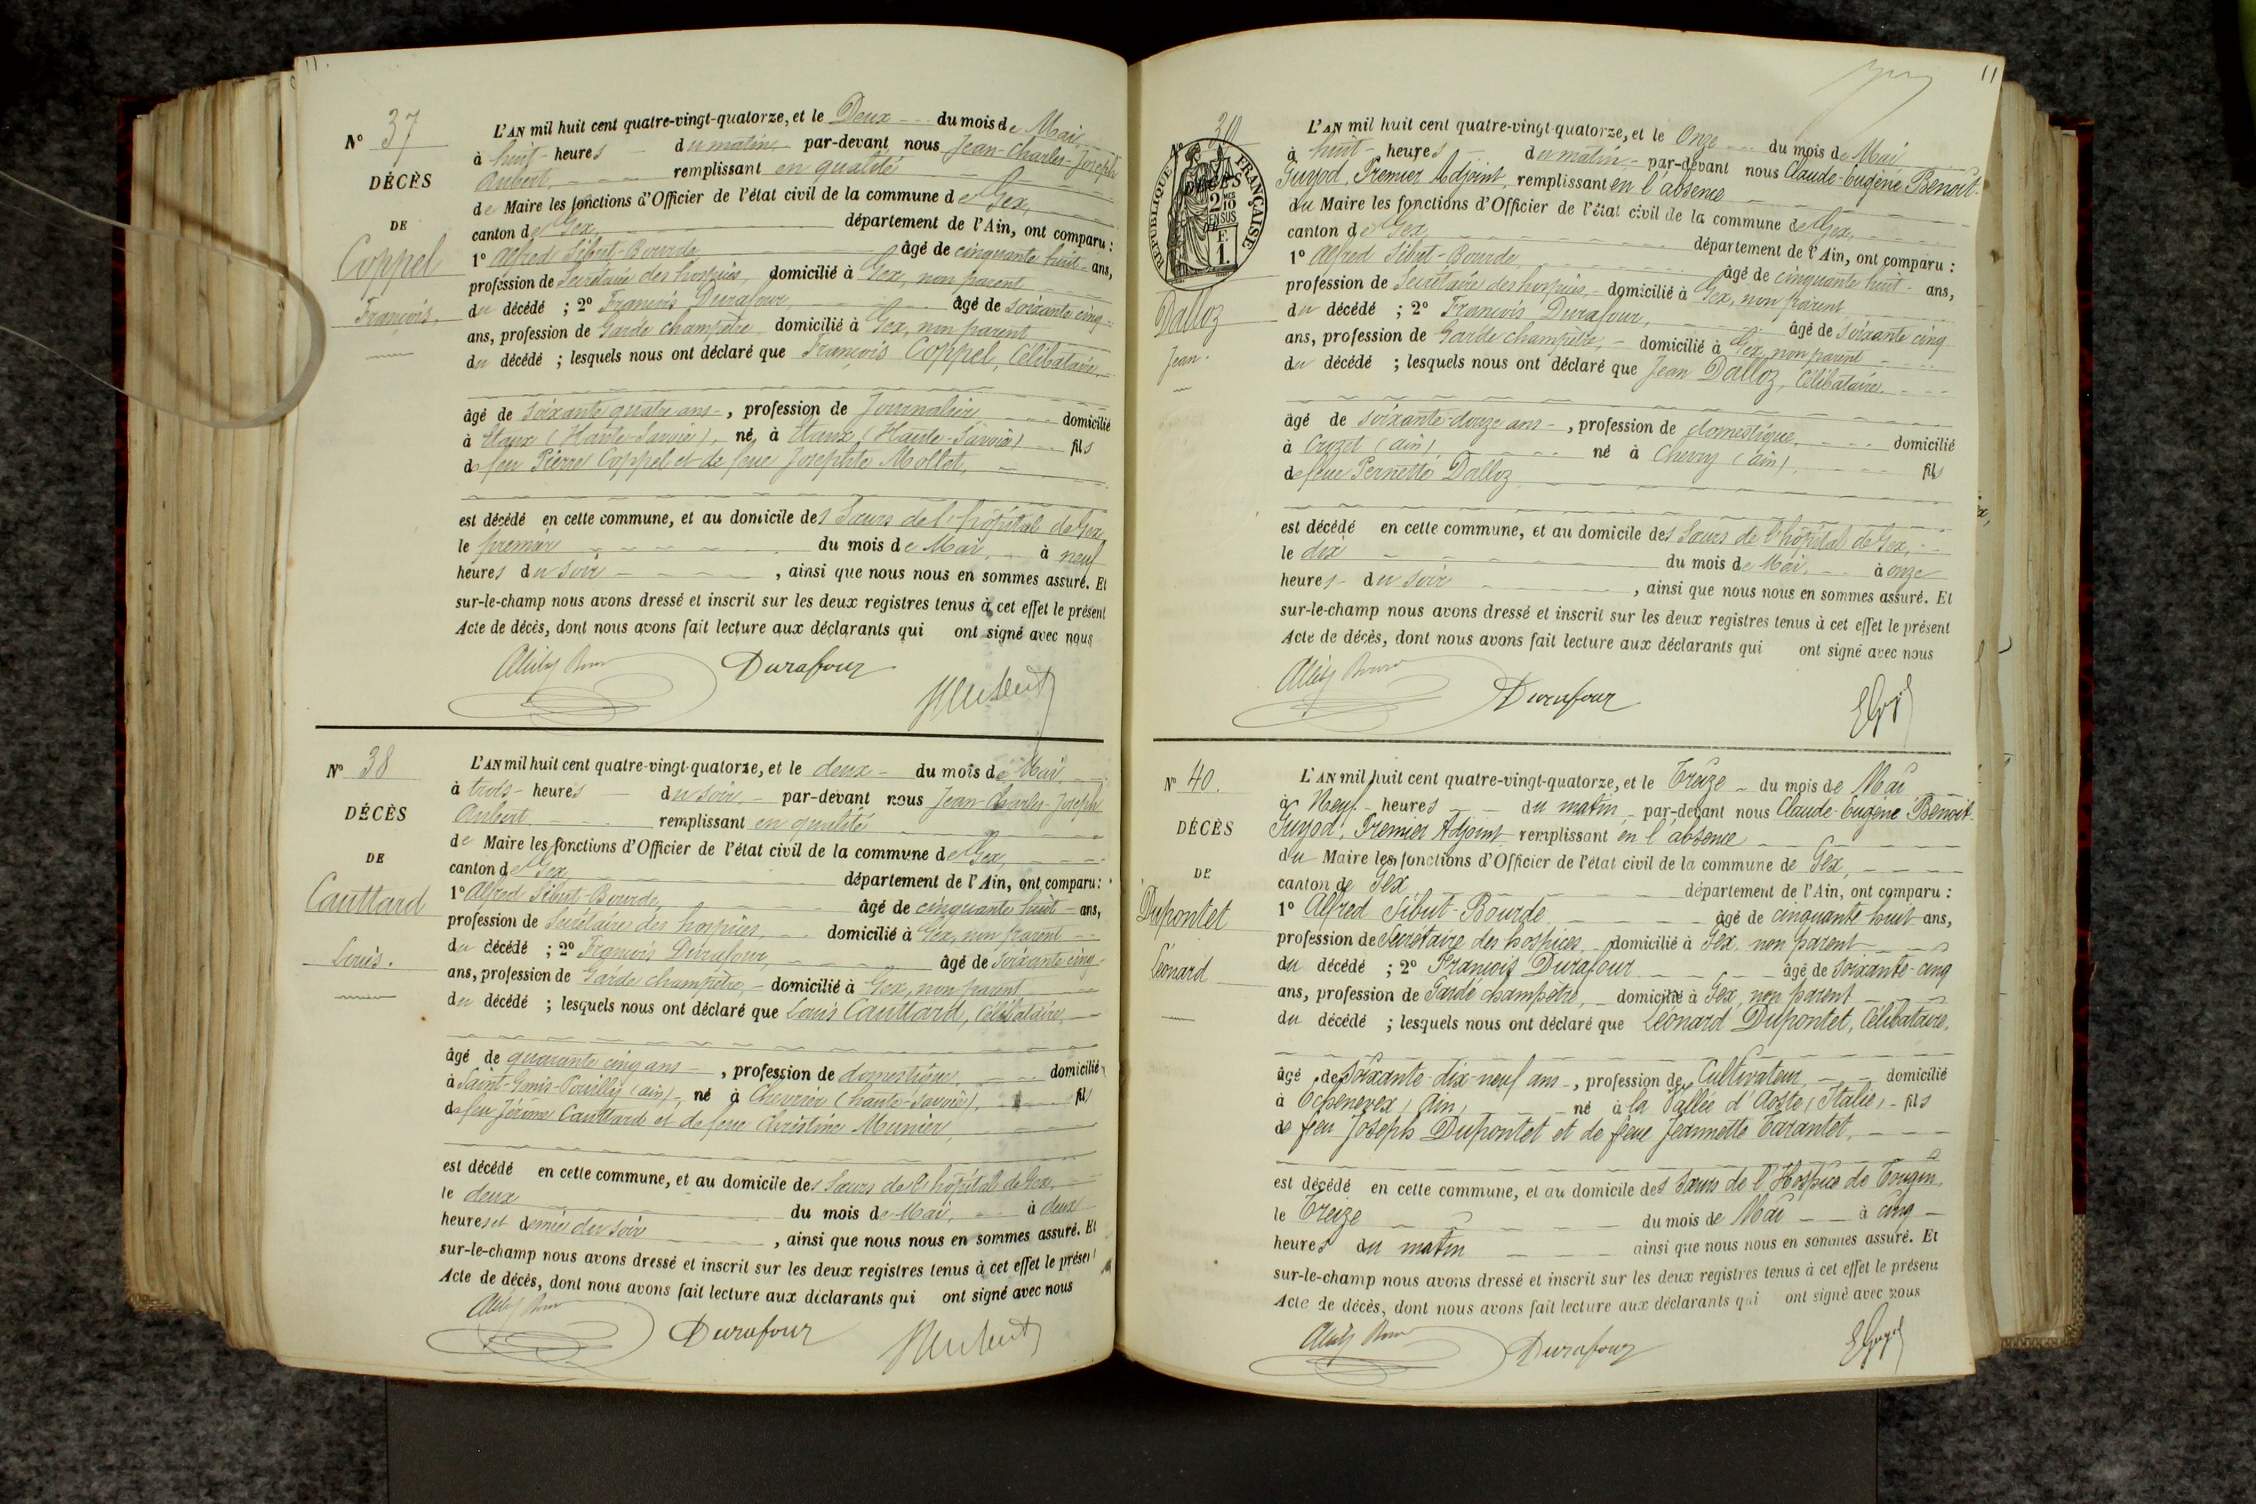 11.
N° 37
DÉCÈS
DE
Coppel
François.
L'AN mil huit cent quatre-vingt-quatorze, et le Deux du mois de Mai
à huit heures du matin par-devant nous Jean-Charles-Joseph
Aubert, remplissant en qualité
de Maire les fonctions d'Officier de l'état civil de la commune de Gex,
canton de Gex, département de l'Ain, ont comparu :
1° Alfred Sibut-Bourde âgé de cinquante huit ans,
profession de Secrétaire des hospices, domicilié à Gex, non parent
du décédé ; 2° François Durafour, âgé de soixante cinq
ans, profession de Garde champêtre domicilié à Gex, non parent
du décédé ; lesquels nous ont déclaré que François Coppel, Célibataire,
âgé de soixante quatre ans, profession de Journalier domicilié
à Etaux (Haute-Savoie), né à Etaux (Haute-Savoie) fils
de feu Pierre Coppel et de feue Josephte Mollet,
est décédé en cette commune, et au domicile des Sœurs de l'hôpital de Gex
le premier du mois de Mai à neuf
heures du soir, ainsi que nous nous en sommes assuré. Et
sur-le-champ nous avons dressé et inscrit sur les deux registres tenus à cet effet le présent
Acte de décès, dont nous avons fait lecture aux déclarants qui ont signé avec nous
Durafour
N° 38
DÉCÈS
DE
Cauttard
Louis.
L'AN mil huit cent quatre-vingt-quatorze, et le deux du mois de Mai
à trois heures du soir, par-devant nous Jean-Charles-Joseph
Aubert remplissant en qualité
de Maire les fonctions d'Officier de l'état civil de la commune de Gex,
canton de Gex département de l'Ain, ont comparu :
1° Alfred Sibut-Bourde, âgé de cinquante huit ans,
profession de Secrétaire des hospices, domicilié à Gex, non parent
du décédé ; 2° François Durafour, âgé de soixante cinq
ans, profession de Garde champêtre, domicilié à Gex, non parent
du décédé ; lesquels nous ont déclaré que Louis Cauttard, Célibataire,
âgé de quarante cinq ans, profession de domestique, domicilié
à Saint-Genis-Pouilly (ain), né à Chevrier (haute-Savoie), fils
de feu Jérôme Cauttard et de feue Christine Munier,
est décédé en cette commune, et au domicile des Sœurs de l'hôpital de Gex,
le deux du mois de Mai, à deux
heures et demie du soir, ainsi que nous nous en sommes assuré. Et
sur-le-champ nous avons dressé et inscrit sur les deux registres tenus à cet effet le présent
Acte de décès, dont nous avons fait lecture aux déclarants qui ont signé avec nous
Durafour
11
N° 39
DÉCÈS
RÉPUBLIQUE FRANÇAISE
2 10
EN SUS
F.
1.
Dalloz
Jean.
L'AN mil huit cent quatre-vingt-quatorze, et le Onze du mois de Mai
à huit heures du matin par-devant nous Claude-Eugène Benoit-
Guyod, Premier Adjoint, remplissant en l'absence
du Maire les fonctions d'Officier de l'état civil de la commune de Gex,
canton de Gex département de l'Ain, ont comparu :
1° Alfred Sibut-Bourde, âgé de cinquante huit ans,
profession de Secrétaire des hospices, domicilié à Gex, non parent
du décédé ; 2° François Durafour, âgé de soixante cinq
ans, profession de Garde champêtre, domicilié à Gex, non parent
du décédé ; lesquels nous ont déclaré que Jean Dalloz, Célibataire,
âgé de soixante-douze ans, profession de domestique, domicilié
à Crozet (ain) né à Chevry (ain), fils
de feue Pernette Dalloz
est décédé en cette commune, et au domicile des Sœurs de l'hôpital de Gex,
le dix du mois de Mai, à onze
heures du soir, ainsi que nous nous en sommes assuré. Et
sur-le-champ nous avons dressé et inscrit sur les deux registres tenus à cet effet le présent
Acte de décès, dont nous avons fait lecture aux déclarants qui ont signé avec nous
Durafour
N° 40.
DÉCÈS
DE
Dupontet
Léonard
L'AN mil huit cent quatre-vingt-quatorze, et le Treize du mois de Mai
à Neuf heures du matin par-devant nous Claude-Eugène Benoit-
Guyod, Premier Adjoint remplissant en l'absence
du Maire les fonctions d'Officier de l'état civil de la commune de Gex,
canton de Gex département de l'Ain, ont comparu :
1° Alfred Sibut-Bourde âgé de cinquante huit ans,
profession de Secrétaire des hospices domicilié à Gex, non parent
du décédé ; 2° François Durafour âgé de soixante-cinq
ans, profession de Garde champêtre, domicilié à Gex, non parent
du décédé ; lesquels nous ont déclaré que Léonard Dupontet, Célibataire,
âgé de soixante-dix-neuf ans, profession de Cultivateur, domicilié
à Echenevex (Ain) né à la Vallée d'Aoste (Italie) fils
de feu Joseph Dupontet et de feue Jeannette Tarantet,
est décédé en cette commune, et au domicile des Sœurs de l'Hospice de Tougin,
le Treize du mois de Mai à cinq
heures du matin ainsi que nous nous en sommes assuré. Et
sur-le-champ nous avons dressé et inscrit sur les deux registres tenus à cet effet le présent
Acte de décès, dont nous avons fait lecture aux déclarants qui ont signé avec nous
Durafour